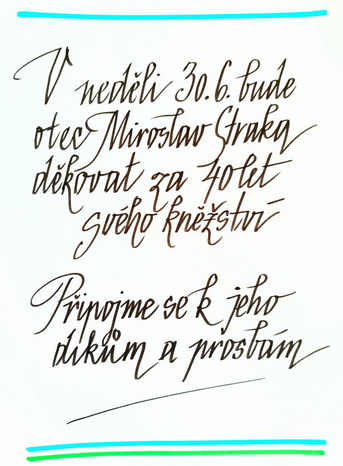 V neděli 30.6. bude
otec Miroslav Straka
děkovat za 40 let
svého kněžství
Připojme se k jeho
díkům a prosbám